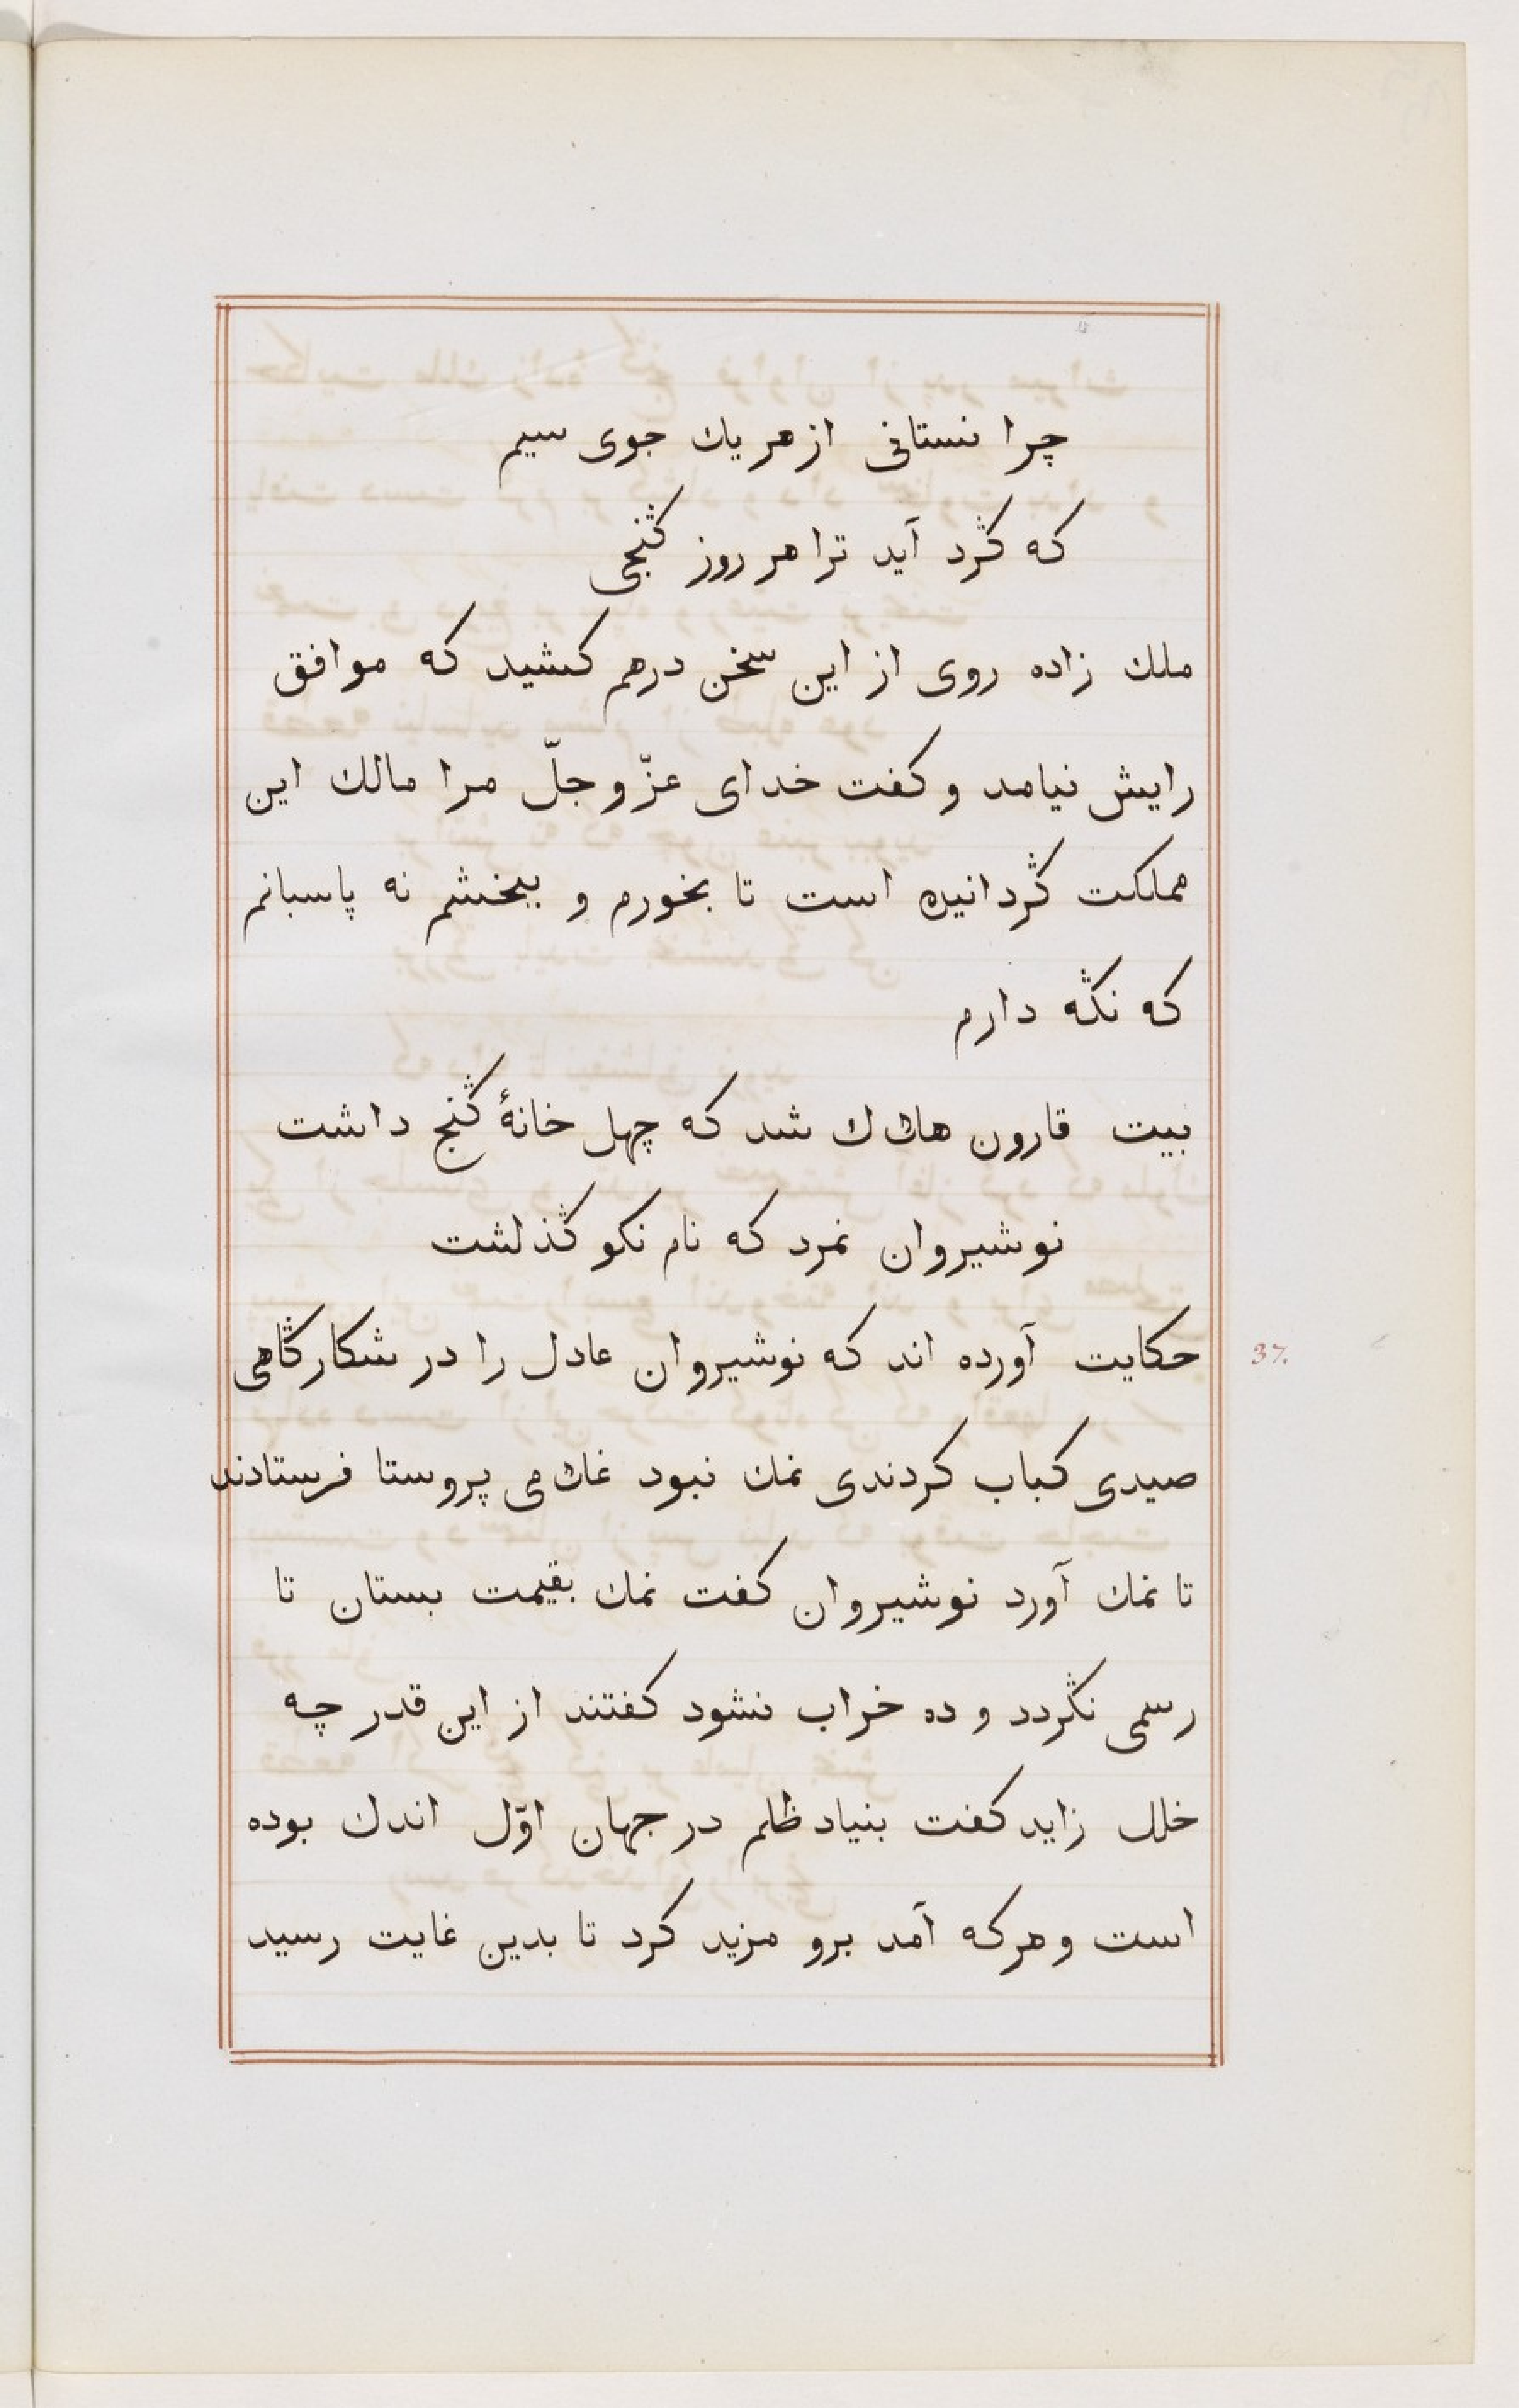 چرا نستانی از هر یك جوی سیم
که گرد آید ترا هر روز گنجی
ملك زاده روی از این سخن درهم کشید که موافق
رایش نیامد و کفت خدای عزّ و جلّ مرا مالك این
مملکت گردانیده است تا بخورم و ببخشم نه پاسبانم
که نگه دارم
بیت قارون هلاك شد که چهل خانهٔ گنج داشت
نوشیروان نمرد که نام نکو گذاشت
حکایت آورده اند که نوشیروان عادل را در شکارگاهی
37.
صیدی کباب کردندی نمك نبود غلامی پروستا فرستادند
تا نمك آورد نوشیروان کفت نمك بقیمت بستان تا
رسمی نگردد و ده خراب نشود کفتند از این قدر چه
خلل زاید کفت بنیاد ظلم در جهان اوّل اندك بوده
است و هرکه آمد برو مزید کرد تا بدین غایت رسید